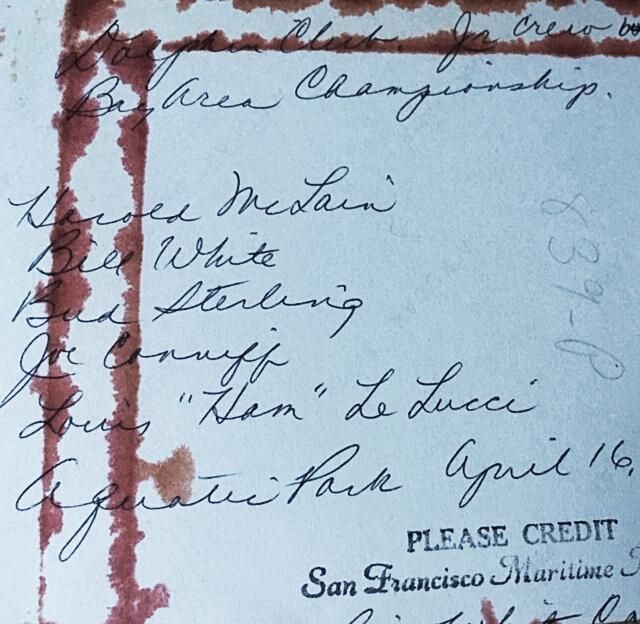 Dolphin Club. Jr crew
Bay Area Championship.
Harold McLain
Bill White
Bud Sterling
Joe Conniff
Louis "Ham" Le Lucci
Aquatic Park April 16,
839-P
PLEASE CREDIT
San Francisco Maritime